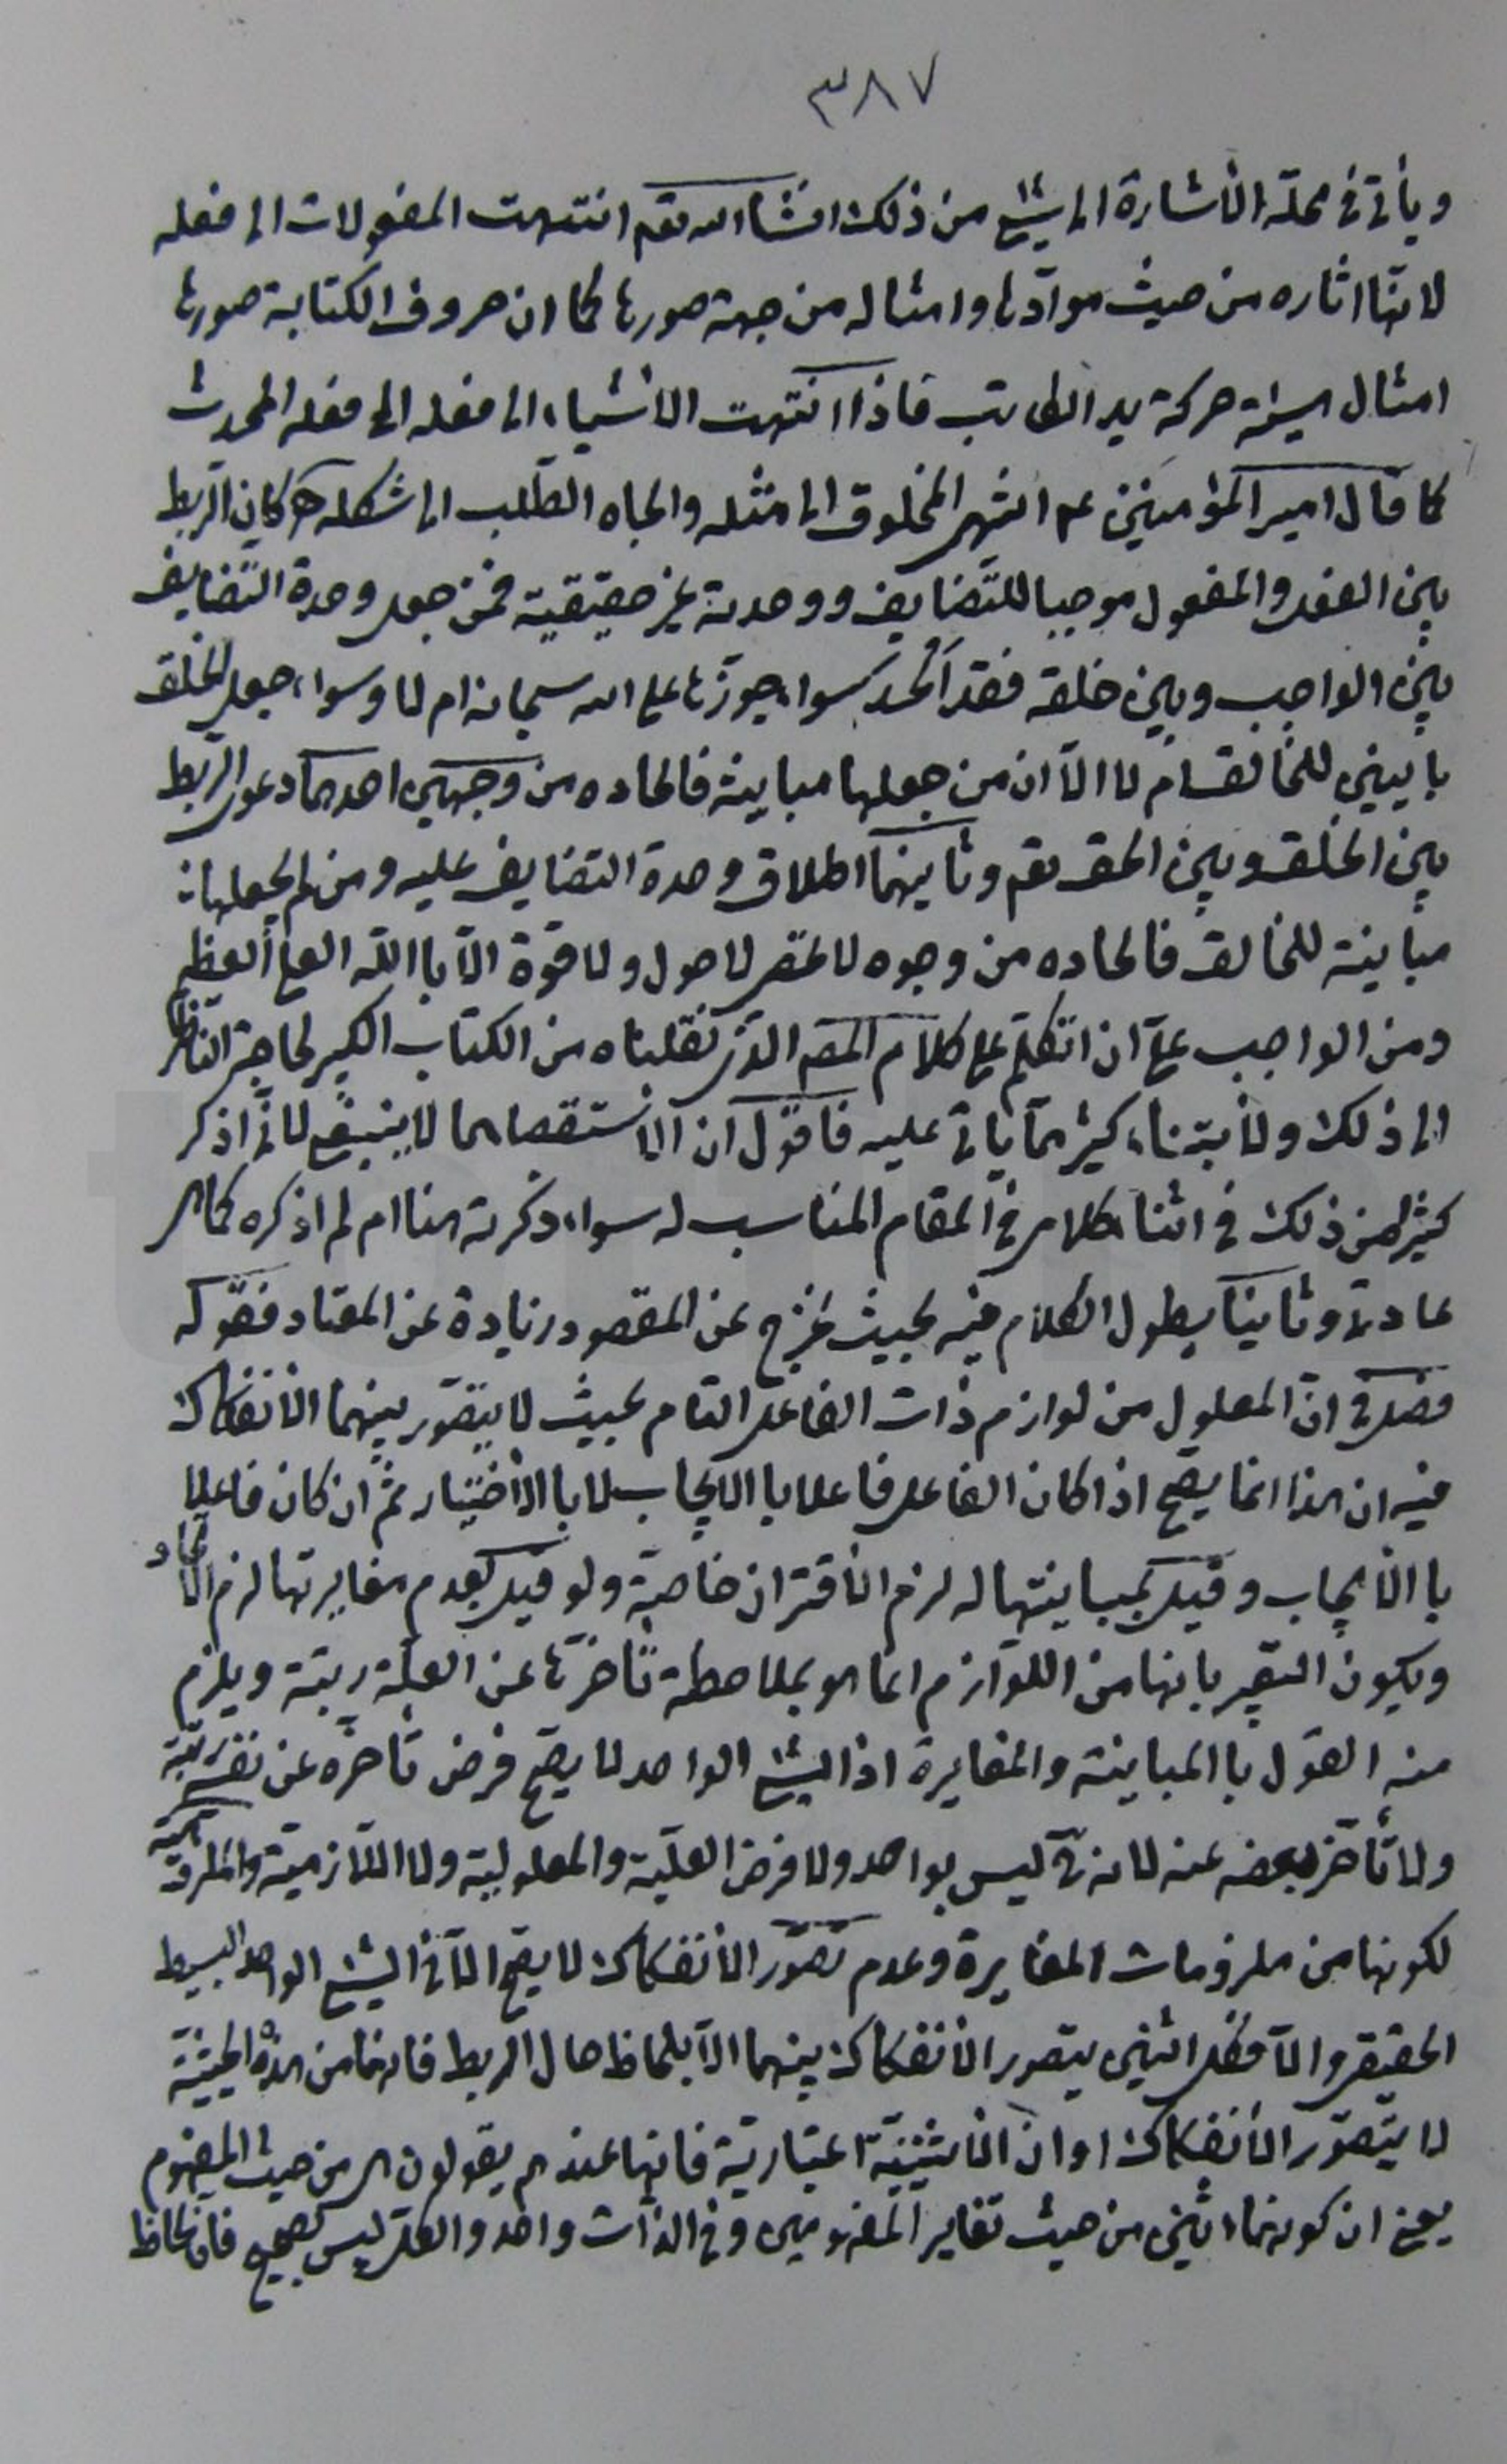 ٣٨٧
ويأتى فى محلّه الأشارة الى شئ من ذلك انشاء الله تعم انتهت المفعولات الى فعله
لانّها اثاره من حيث موادّها وامثاله من جهة صورها كما ان حروف الكتابة صورها
امثال هيئة حركة يد الكاتب فاذا انتهت الأشياء الى فعله الى فعله المحدث
كما قال امير المؤمنين عم انتهى المخلوق الى مثله والجاه الطّلب الى شكله كان الرّبط
بين الفعل والمفعول موجبا للتّضايف ووحدته غير حقيقية فمن جعل وحدة التّضايف
بين الواجب وبين خلقه فقد الحد سواء جوّزها على الله سبحانه ام لا وسواء جعل الخلق
باينين للخالق ام لا الّا ان من جعلها مباينة فالحاده من وجهين احدهما دعوى الرّبط
بين الخلق وبين الحق تعم وثانيهما اطلاق وحدة التضايف عليه ومن لم يجعلها
مباينة للخالق فالحاده من وجوه لا تحصر لا حول ولا قوة الّا باالله العلى العظيم
ومن الواجب علىّ ان اتكلّم على كلام المصه الذى نقلناه من الكتاب الكبير لحاجة الناظر
الى ذلك ولأبتناء كثير ممّا يأتى عليه فاقول ان الأستقصاء هما لا ينبغى لانّى اذكر
كثيرا من ذلك فى اثناء كلامى فى المقام المناسب له سواء ذكرته هنا ام لم اذكره كما هى
عادتى وثانيا يطول الكلام فيه بحيث يخرج عن المقصود زيادة عن المعتاد فقوله
فصل فى انّ المعلول من لوازم ذات الفاعل التام بحيث لا يتصوّر بينهما الأنفكاك
فيه ان هذا انما يصحّ اذا كان الفاعل فاعلا باالايجاب لا باالأختيار ثمّ ان كان فاعلا
باالأيجاب وقيل بمباينتها له لزم الأقتران خاصّة ولو قيل بعدم مغايرتها لزم الأتحاد و
ويكون التعبير بانها من اللوازم انما هو بملاحظة تأخّرها عن العلّة رتبة ويلزم
منه القول باالمباينة والمغايرة اذ الشئ الواحد لا يصحّ فرض تأخره عن نفسه رتبة
ولا تأخّر بعضه عنه لانه ح ليس بواحد ولا فرض العلّية والمعلولية ولا اللّازميّة والملزوميّة
لكونها من ملزومات المغايرة وعدم تصوّر الأنفكاك لا يصحّ الّا فى الشئ الواحد البسيط
الحقيقى والّا فكل اثنين يتصور الأنفكاك بينهما الّا بلحاظ حال الربط فانهما من هذه الحيثيّة
لا يتصوّر الأنفكاك او ان الأثنينيّة اعتباريّة فانها عندهم يقولون هى من حيث المفهوم
يعنى ان كونهما اثنين من حيث تغاير المفهومين وفى الذات واحد والكل ليس بصحيح فان لحاظ